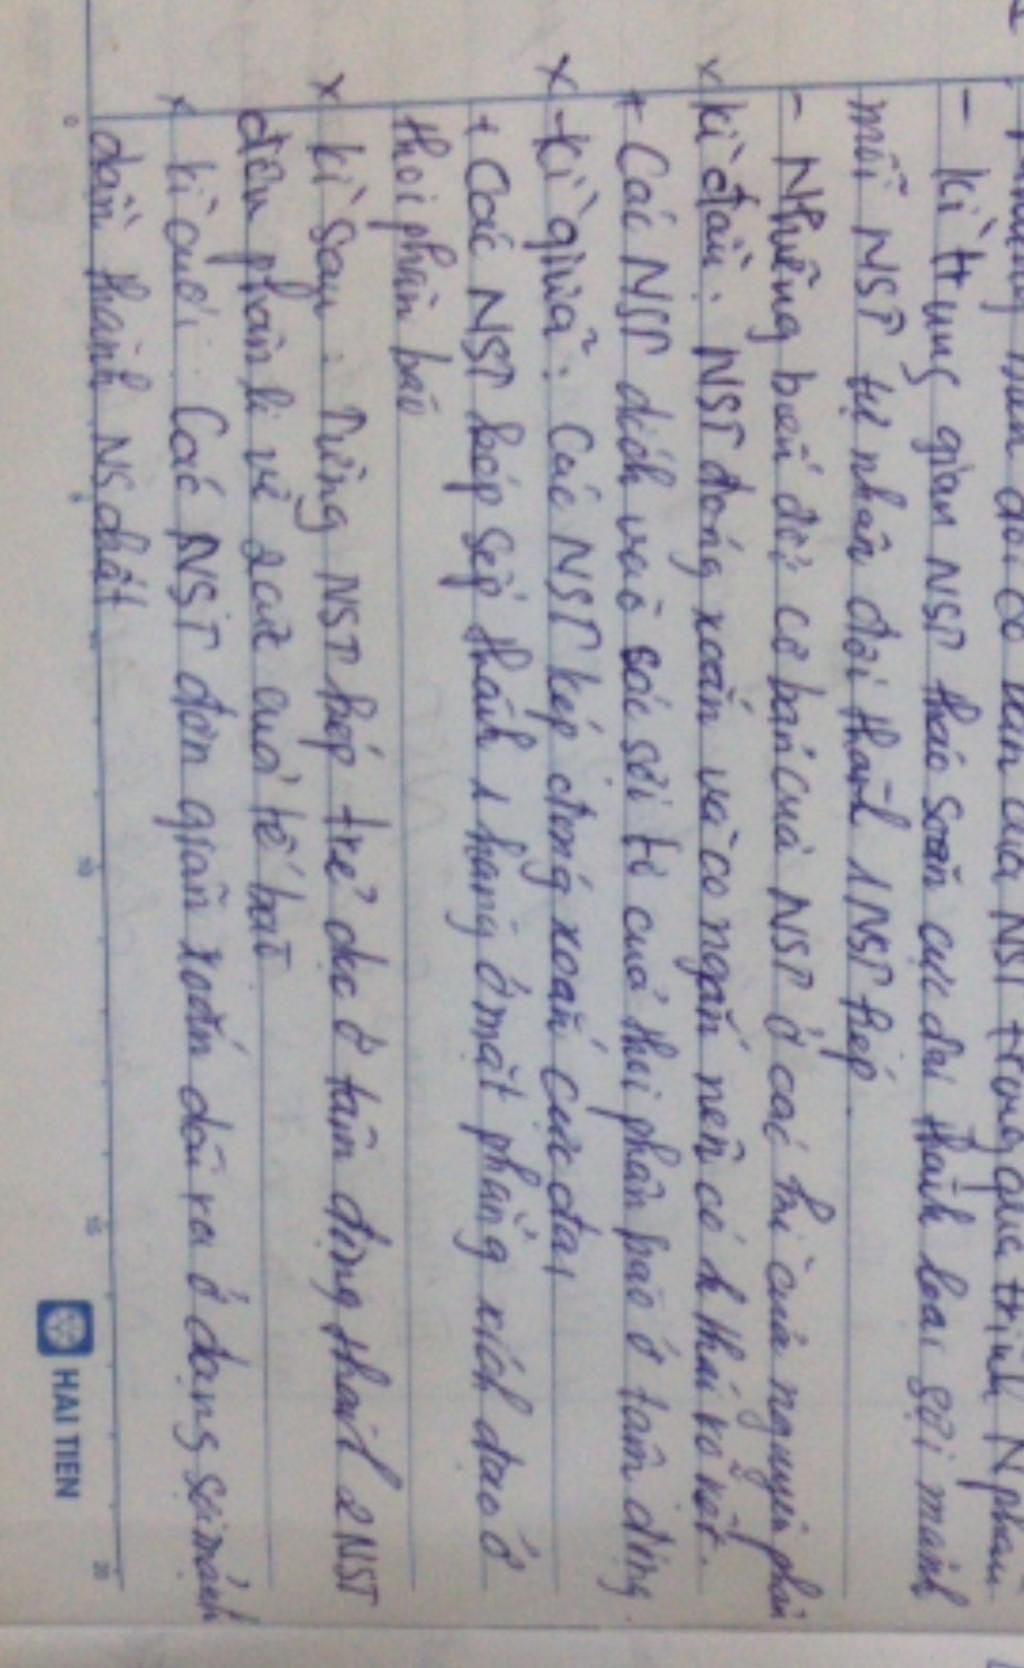 Những biến đổi cơ bản của NST trong quá trình N phân
- Kì trung gian NST tháo xoắn cực đại thành loại sợi mảnh
mỗi NST tự nhân đôi thành 1 NST kép.
- Những biến đổi cơ bản của NST ở các kì của nguyên phân
x Kì đầu: NST đóng xoắn và co ngắn nên có h thái rõ rệt.
+ Các NST dính vào các sợi tơ của thoi phân bào ở tâm động.
x - Kì giữa: Các NST kép đóng xoắn cực đại
+ Các NST kép xếp thành 1 hàng ở mặt phẳng xích đạo ở
thoi phân bào
x Kì sau: Từng NST kép trẻ dọc ở tâm động thành 2 NST
đơn phân li về 2 cực của tế bào
x kì cuối: Các NST đơn giãn xoắn dài ra ở dạng sợi mảnh
dần thành NS chất
0 5 10 15 20
HAI TIEN